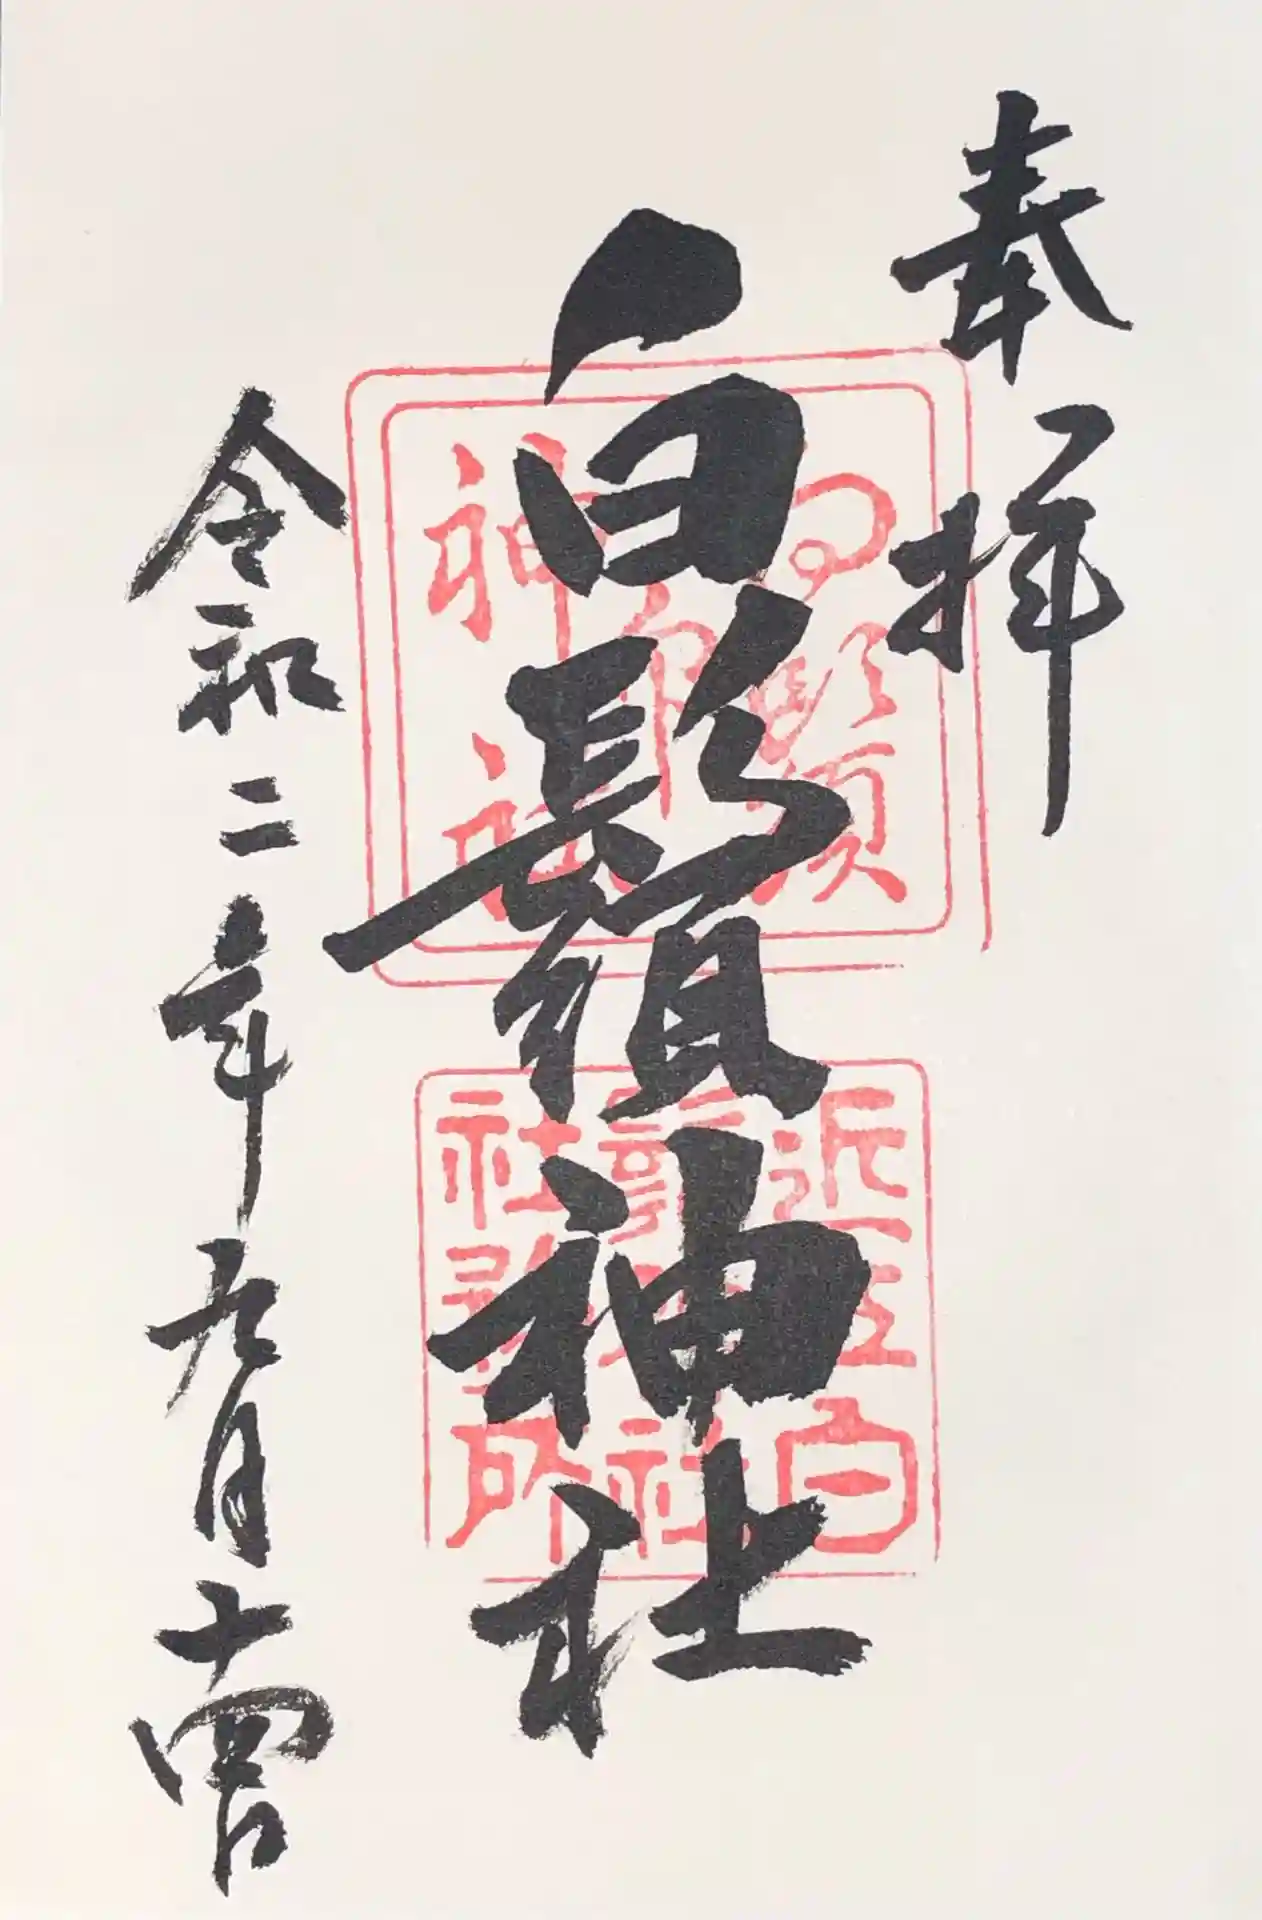 奉拝
白鬚神社
令和二年九月十四日
白鬚
神社
近江白
鬚神社
社務所